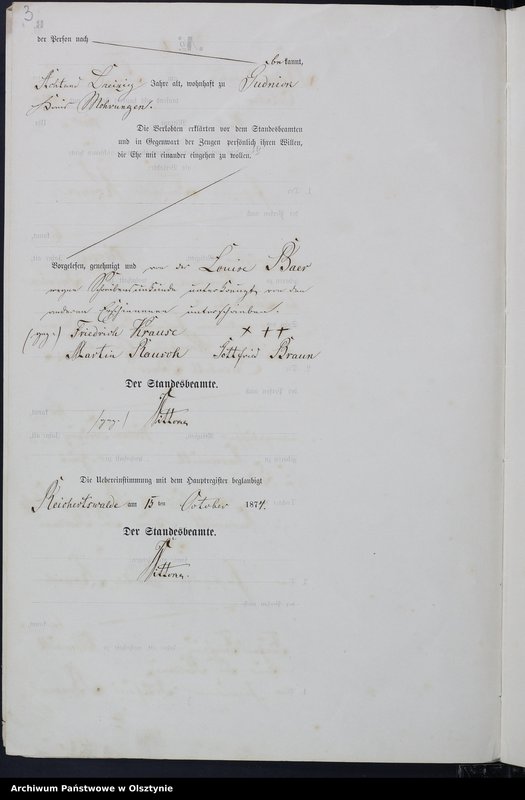 3
der Person nach
be kannt,
Achtund Dreizig Jahre alt, wohnhaft zu Gudnick
Kreis Mohrungen.
Die Verlobten erklärten vor dem Standesbeamten
und in Gegenwart der Zeugen persönlich ihren Willen,
die Ehe mit einander eingehen zu wollen.
Vorgelesen, genehmigt und von der Louise Baer
wegen Schreibensunkunde unterkreuzt, von den
anderen unterschrieben.
(gez.) Friedrich Krause × ++
Martin Rausch Gottfried Braun
Der Standesbeamte.
/gez./
Die Uebereinstimmung mit dem Hauptregister beglaubigt
Reichertswalde am 15 ten October 1874.
Der Standesbeamte.
Archiwum Państwowe w Olsztynie